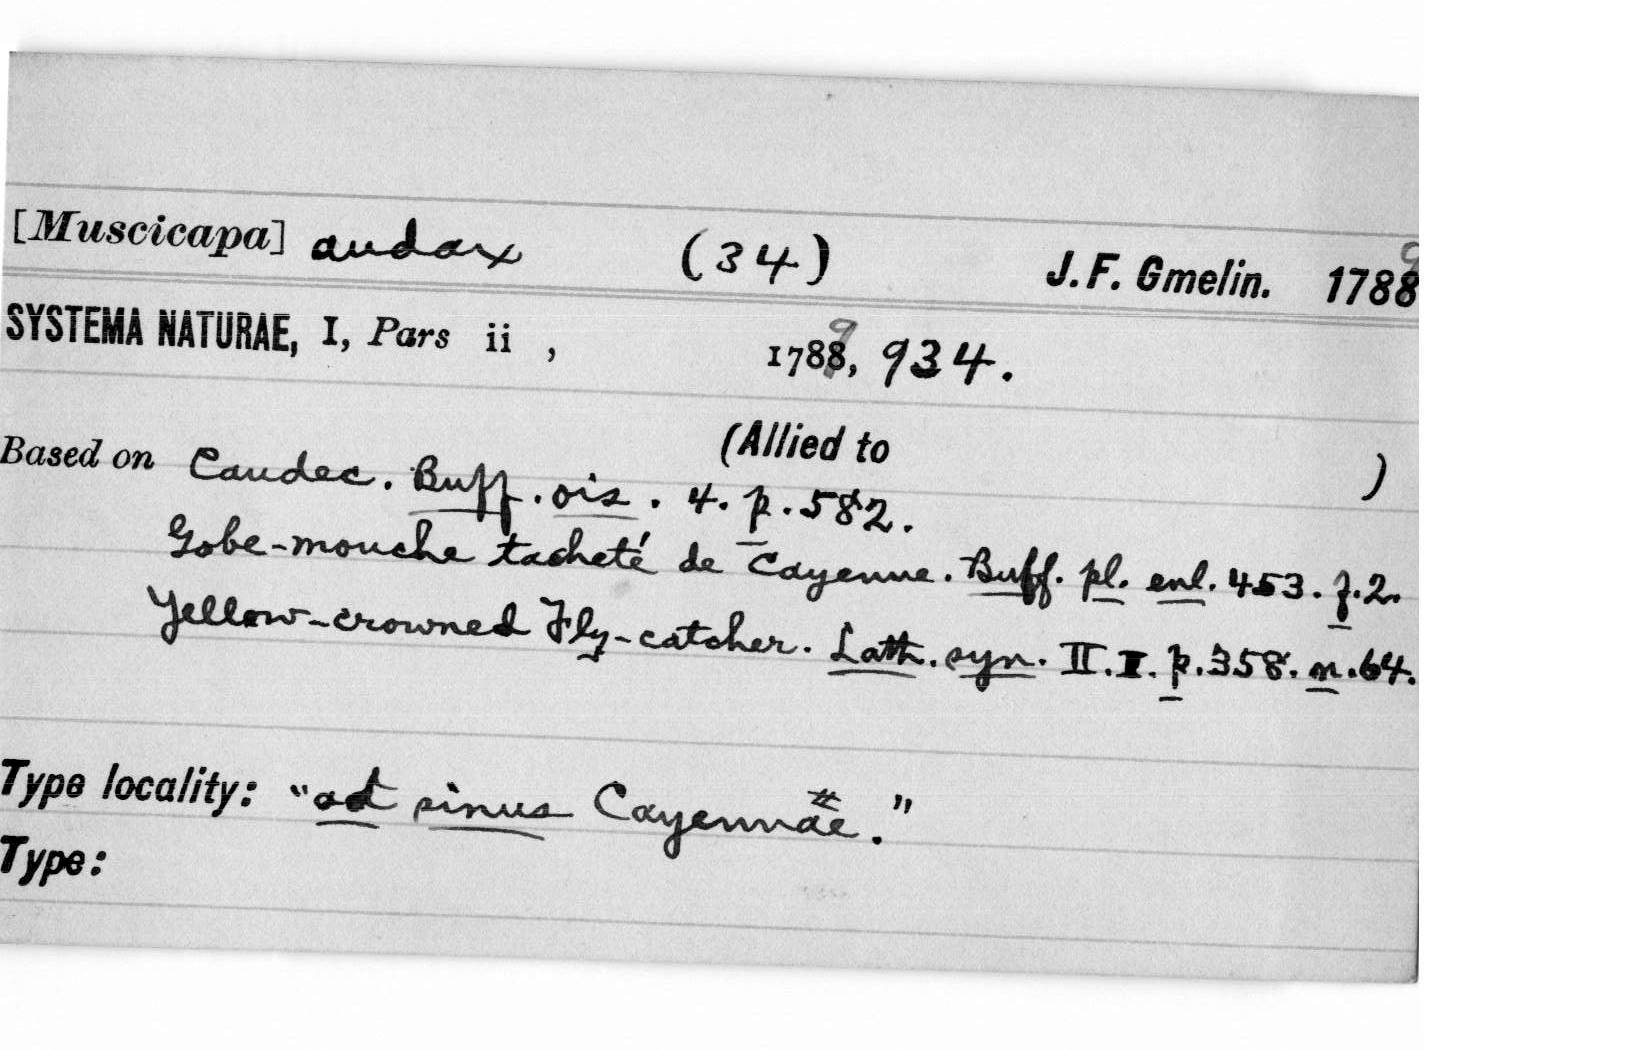 [Muscicapa] audax (34) J.F. Gmelin. 1788 9
SYSTEMA NATURAE, I, Pars ii , 1788 9, 934.
(Allied to )
Based on Caudec. Buff. ois. 4. p. 582.
Gobe-mouche tacheté de Cayenne. Buff. pl. enl. 453. f.2.
Yellow-crowned Fly-catcher. Lath. syn. II.I. p.358. n.64.
Type locality: "ad sinus Cayennae."
Type: